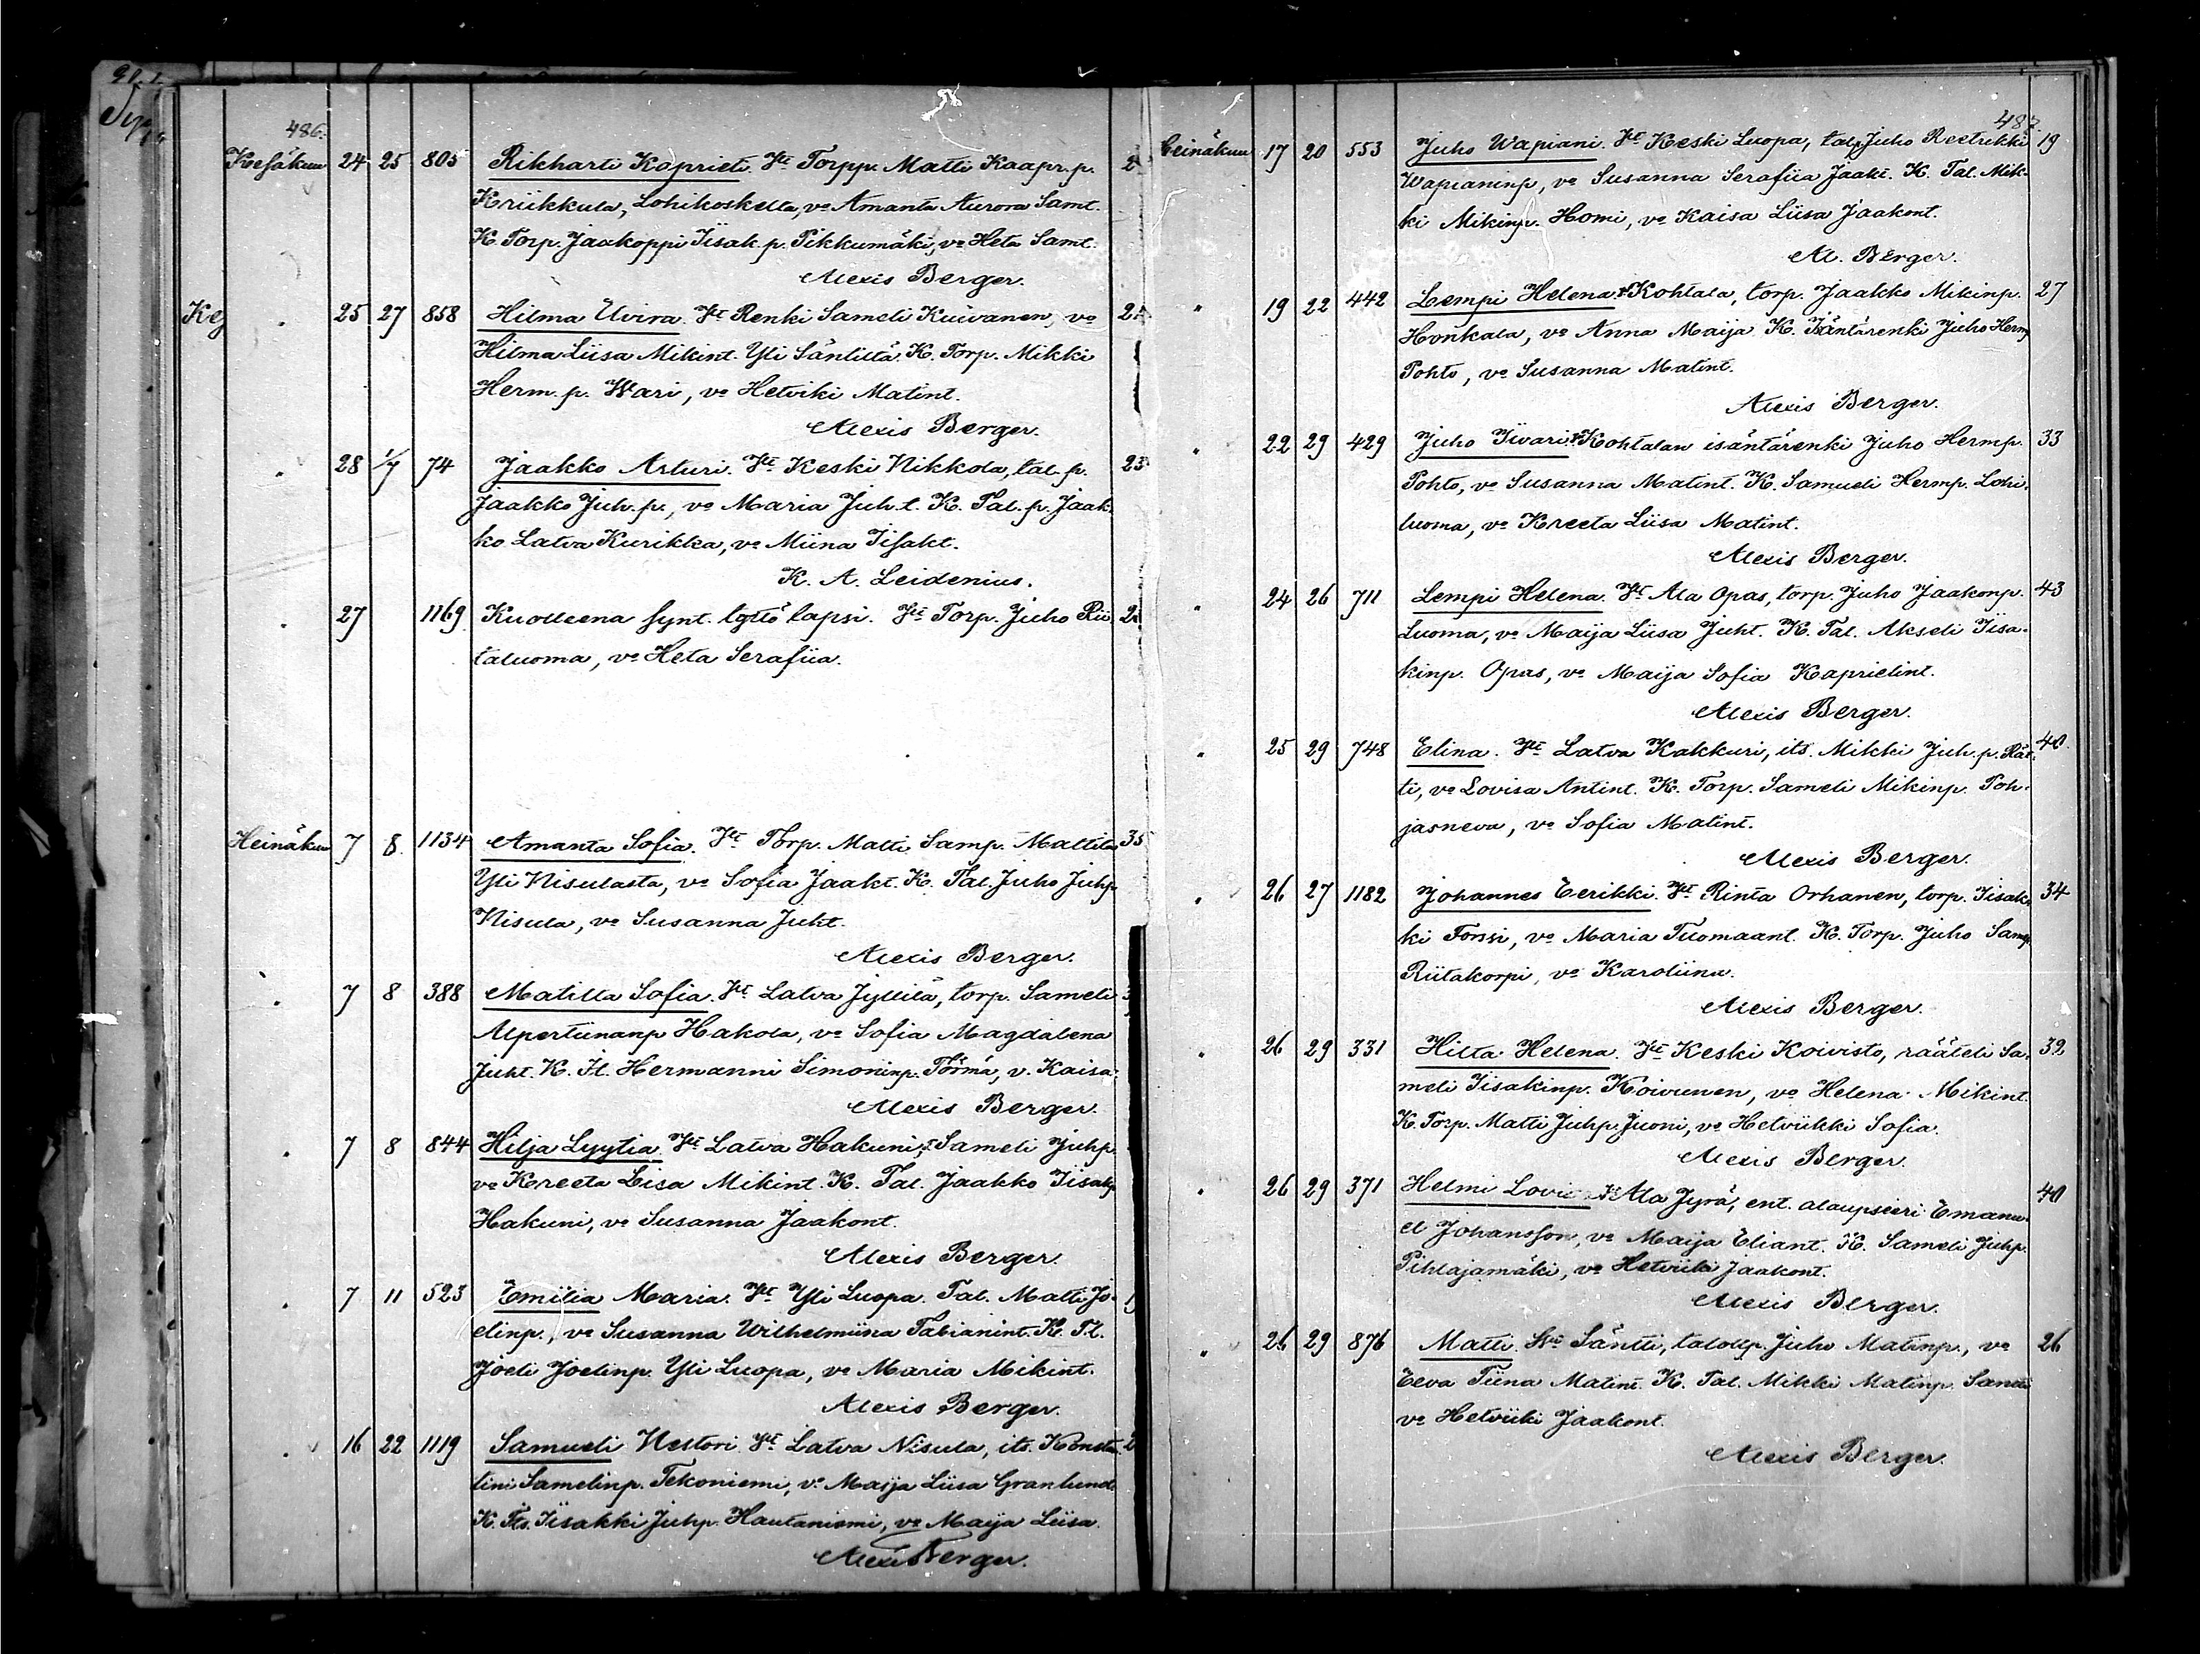 486.
Kesäkuu 24 25 805 Rikharti Kaprieli. Vt Torpp. Matti Kaapr. p.
Kriikkula, Lohikoskella, vo Amanta Aurora Samt.
K. Torp. Jaakoppi Iisak. p. Pikkumäki, vo Heta Samt.
Alexis Berger.
Kej 25 27 858 Hilma Elvira. Vt Renki Sameli Kuivanen, vo
Hilma Liisa Mikint. Yli Säntillä. K. Torp. Mikki
Herm. p. Wari, vo Hetviki Matint.
Alexis Berger.
28 1/7 74 Jaakko Arturi. Vt Keski Nikkola, tal. p. 23
Jaakko Juh. p., vo Maria Juh. t. K. Tal. p. Jaak-
ko Latva Kurikka, vo Miina Iisakt.
K. A. Leidenius.
27 1169 Kuolleena synt. tyttö lapsi. Vt Torp. Juho Rii
taluoma, vo Heta Serafiia.
Heinäkuu 7 8 1134 Amanta Sofia. Vt Torp. Matti Samp. Mattila 35
Yli Nisulasta, vo Sofia Jaakt. K. Tal. Juho Juhp.
Nisula, vo Susanna Juht.
Alexis Berger.
7 8 388 Matilta Sofia. Vt Latva Jyllilä, torp. Sameli
Alpertiinanp Hakola, vo Sofia Magdalena
Juht. K. It. Hermanni Simoninp. Törmä, v. Kaisa.
Alexis Berger.
7 8 844 Hilja Lyytia Vt Latva Hakuni, t. Sameli Juhp.
vo Kreeta Lisa Mikint. K. Tal. Jaakko Iisakp
Hakuni, vo Susanna Jaakont.
Alexis Berger.
7 11 523 Emilia Maria. Vt Yli Luopa. Tal. Matti Jo-
elinp., vo Susanna Wilhelmiina Fabianint. K. Tl.
Joeli Joelinp. Yli Luopa, vo Maria Mikint.
Alexis Berger.
16 22 1119 Samueli Nestori Vt Latva Nisula, its. Konstan
tini Samelinp. Tekoniemi, vo Maija Liisa Granlund.
K. Its. Iisakki Juhp. Hautaniemi, vo Maija Liisa.
Alexis Berger.
487.
Heinäkuu 17 20 553 Juho Wapiani. Vt Keski Luopa, tal. Juho Reetrikki 19
Wapianinp, vo Susanna Serafiia Jaakt. K. Tal. Mik-
ki Mikinp. Homi, vo Kaisa Liisa Jaakont.
Al. Berger.
" 19 22 442 Lempi Helena. Vt Kohtala, torp. Jaakko Mikinp. 27
Honkala, vo Anna Maija K. Isäntärenki Juho Herm
Pohto, vo Susanna Matint.
Alexis Berger.
" 22 29 429 Juho Iivari Vt Kohtalan isäntärenki Juho Hermp. 33
Pohto, vo Susanna Matint. K. Samueli Hermp. Lohi-
luoma, vo Kreeta Liisa Matint.
Alexis Berger.
" 24 26 711 Lempi Helena. Vt Ala Opas, torp. Juho Jaakonp. 43
Luoma, vo Maija Liisa Juht. K. Tal. Akseli Iisa-
kinp. Opas, vo Maija Sofia Kaprielint.
Alexis Berger.
" 25 29 748 Elina. Vt Latva Kakkuri, its. Mikki Juh. p. Rät- 40
ti, vo Lovisa Antint. K. Torp. Sameli Mikinp. Poh-
jasneva, vo Sofia Matint.
Alexis Berger.
" 26 27 1182 Johannes Eerikki. Vt Rinta Orhanen, torp. Iisak- 34
ki Forssi, vo Maria Tuomaant. K. Torp. Juho Samp.
Riitakorpi, vo Karoliina.
Alexis Berger.
" 26 29 331 Hilta Helena. Vt Keski Koivisto, räätäli Sa- 32
meli Iisakinp. Koivunen, vo Helena Mikint.
K. Torp. Matti Juhp. Juoni, vo Hetviikki Sofia.
Alexis Berger.
" 26 29 371 Helmi Vt Ala Jyrä, ent. alaupseeri Emanu- 40
el Johansson, vo Maija Eliant. K. Sameli Juhp.
Pihlajamäki, vo Hetviika Jaakont.
Alexis Berger.
" 26 29 876 Matti. Vt Säntti, talollp. Juho Matinp., vo 26
Eeva Tiina Matint. K. Tal. Mikki Matinp. Säntti
vo Hetviiki Jaakont.
Alexis Berger.